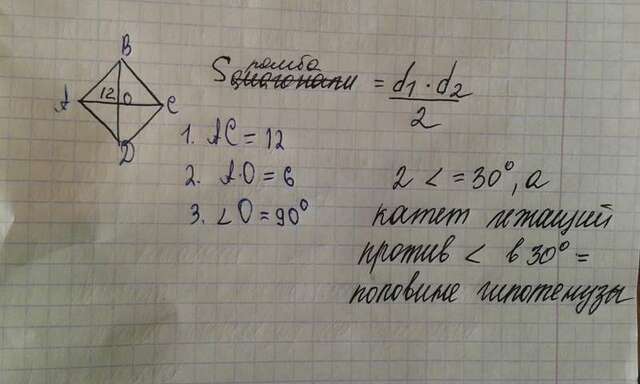 B
A 12 O C
D
S ромба = d1 · d2
2
1. AC = 12
2. AO = 6
3. ∠O = 90°
2 < = 30°, а
катет лежащий
против < в 30° =
половине гипотенузы